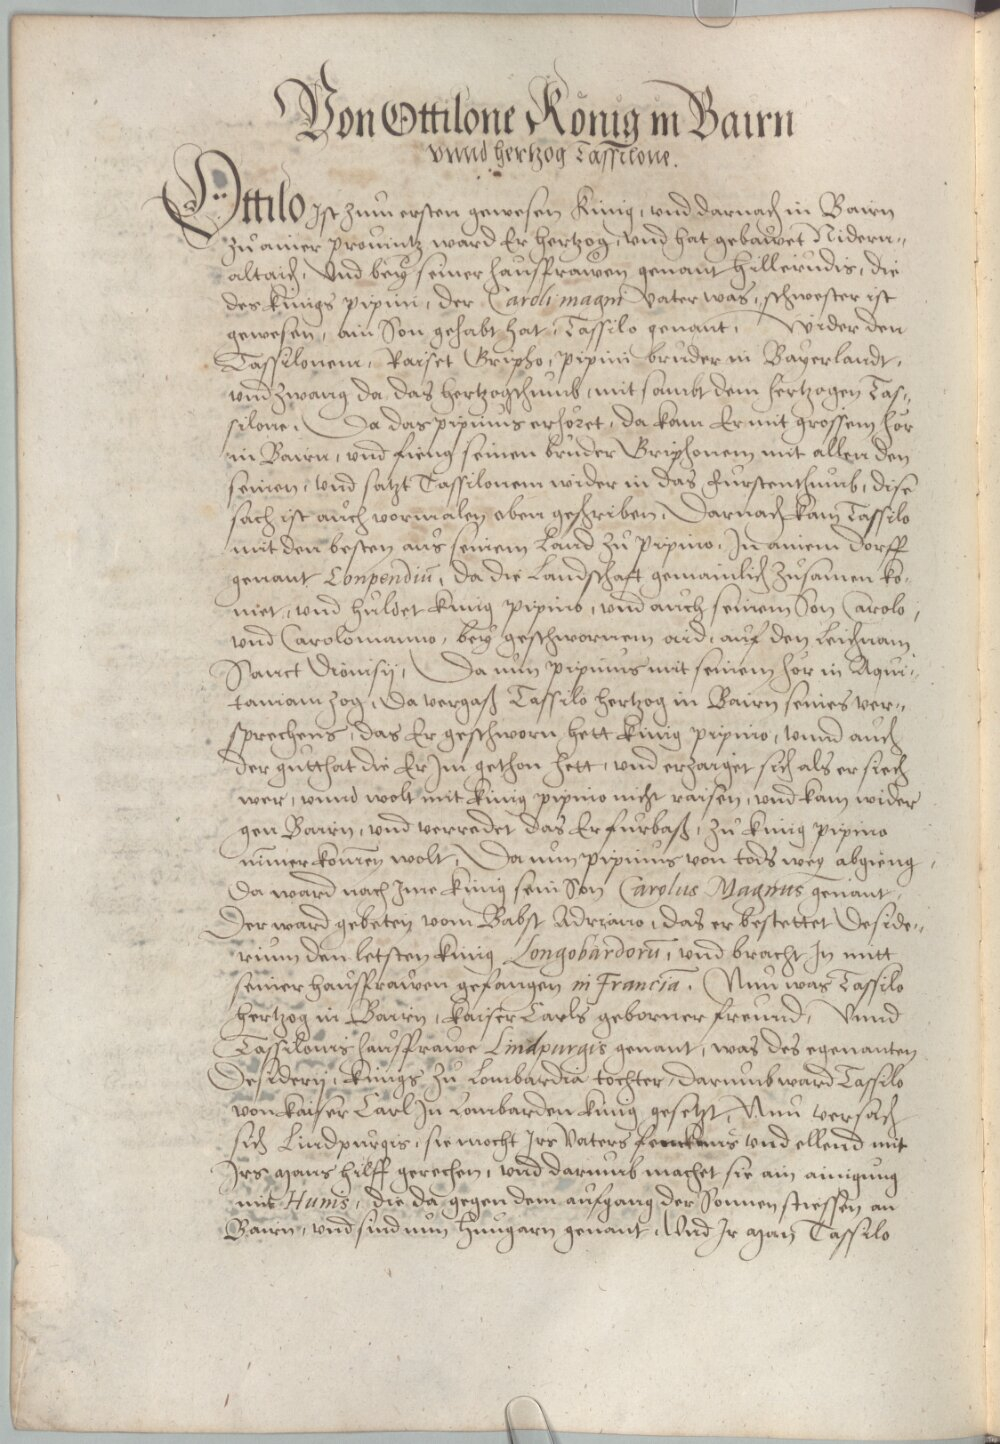 Von Ottilone König in Bairn
vnnd hertzog Tassilone.
Ottilo ist zum ersten gewesen Künig, vnd darnach in Bairn
zu ainer prouintz ward Er hertzog, vnd hat gebawet Nidern-
altaich, Vnd bey seiner hausfrawen genant Hilterudis, die
des künigs pipini, der Caroli magni vater was, schwester ist
gewesen, ain Son gehabt hat, Tassilo genant, Wider den
Tassilonem, Raiset Gripho, pipini bruder in Bayerlandt,
vnd zwang da das hertzogthumb, mit sambt dem hertzogen Tas-
silone. Da das pipinus erhöret, da kam Er mit grossem hör
in Bairn, vnd fieng seinen bruder Griphonem mit allen den
seinen, vnd satzt Tassilonem wider in das fürstenthumb, dise
sach ist auch vormalen oben geschriben, Darnach kam Tassilo
mit den besten aus seinem Land zu Pipino, In ainem dorff
genant Conpendiū, da die Landschafft gemainlich zusamen ko-
met, vnd huldet künig pipino, vnd auch seinem Son Carolo,
vnd Carolomanno, bey geschwornem aid, auf den Leichnam
Sanct Dionisij, Da nun pipinus mit seinem hör in Aqui-
taniam zog, Da vergaß Tassilo hertzog in Bairn seines ver-
sprechens, das Er geschworn hett künig pipino, vnnd auch
der gutthat die Er Im gethon hett, vnd erzaiget sich als er siech
wer, vnnd wolt mit künig pipino nicht raisen, vnd kam wider
gen Bairn, vnd verredet das Er fürbaß, zu künig pipino
nimer komen wolt, Da nun Pipinus von tods weg abgieng,
Da ward nach Ime künig sein Son Carolus Magnus genant,
Der ward gebeten vom Babst Adriano, das er bestettet Deside-
rium den letsten künig Longobardorū, vnd bracht In mitt
seiner hausfrawen gefangen in Francia. Nun was Tassilo
hertzog in Bairn, kaiser Carls geborner freund, Vnnd
Tassilonis hausfrawe Lindpurgis genant, was des egenanten
Desiderij, künigs zu Lombardia tochter, darumb ward Tassilo
von kaiser Carl In Lombarden künig gesetzt, Nun versach
sich Lindpurgis, sie mocht Irs Vaters vnd ellend mit
Irs mans hilff gerechen, vnd darumb machet sie ain ainigung
mit Hunis, die da gegen dem aufgang der Sonnen stiessen an
Bairn, vnd sind nun Hungarn genant, Vnd Ir man Tassilo